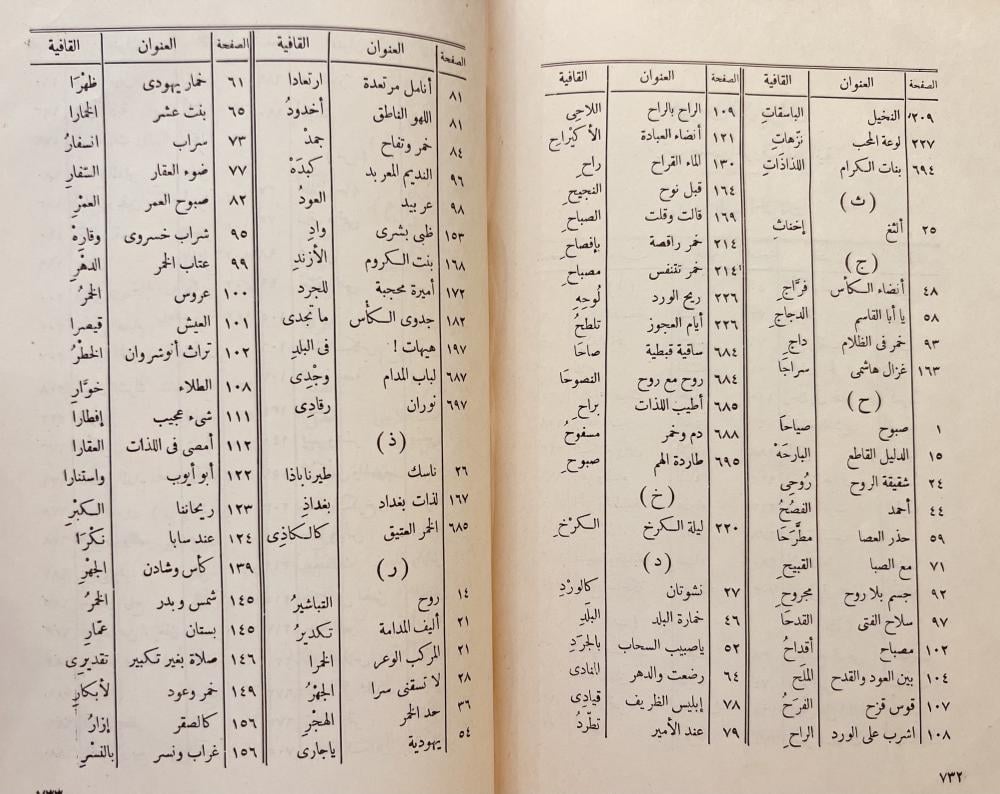 الصفحة العنوان القافية
٢٠٩ النخيل الباسقاتِ
٢٢٧ لوعة المحب نزّهاتِ
٦٩٤ بنات الكرام اللذاذَاتِ
(ث)
٢٥ ألثغ إخناثِ
(ج)
٤٨ أنضاء الكأس فرَّاجِ
٥٨ يا أبا القاسم الدجاجِ
٩٣ خمر فى الظلام داجِ
١٦٣ غزال هاشمى سراجَا
(ح)
١ صبوح صياحَا
١٥ الدليل القاطع البارحَهْ
٢٤ شقيقة الروح رُوحِى
٤٤ أحمد الفصُحُ
٥٩ حذر العصا مطَّرَحَا
٧١ مع الصبا القبيحِ
٩٢ جسم بلا روح مجروحِ
٩٧ سلاح الفتى القدحَا
١٠٢ مصباح أقداحُ
١٠٤ بين العود والقدح الملَحِ
١٠٧ قوس قزح الفرَحُ
١٠٨ اشرب على الورد الراحِ
الصفحة العنوان القافية
١٠٩ الراح بالراح اللاحِى
١٢١ أنضاء العبادة الأكيْراحِ
١٣٠ الماء القراح راحِ
١٦٤ قبل نوح النجيحِ
١٦٩ قالت وقلت الصباحِ
٢١٤ خمر راقصة بإفصاحِ
٢١٤ خمر تتنفس مصباحِ
٢٢٦ ريح الورد لُوحِهِ
٢٢٦ أيام العجوز تلطحُ
٦٨٤ ساقية قبطية صاحَا
٦٨٤ روح مع روح النصوحَا
٦٨٥ أطيب اللذات براحِ
٦٨٨ دم وخمر مسفوحُ
٦٩٥ طاردة الهم صبوحِ
(خ)
٢٢٠ ليلة الكرخ الكرْخِ
(د)
٢٧ نشوتان كالورْدِ
٤٦ خمارة البلد البلَدِ
٥٢ ياصبيب السحاب بالجرَدِ
٦٤ رضعت والدهر النادى
٧٨ إبليس الظريف قيادِى
٧٩ عند الأمير تطّردُ
٧٣٢
الصفحة العنوان القافية
٨١ أنامل مرتعدة ارتعادا
٨١ اللهو الناطق أخدودُ
٨٤ خمر وتفاح جمدْ
٩٦ النديم المعربد كبدَهْ
٩٨ عربيد العودُ
١٥٣ ظبى بشرى وادِ
١٦٨ بنت الكروم الأزندِ
١٧٢ أميرة محجبة للجرد
١٨٢ جدوى الكأس ما تجدى
١٩٧ هيهات ! فى البلدِ
٦٨٧ لباب المدام وجْدِى
٦٩٧ نوران رقادِى
(ذ)
٢٦ ناسك طيرناباذا
١٦٧ لذات بغداد بغداذِ
٦٨٥ الخمر العتيق كالكاذِى
(ر)
١٤ روح التباشيرُ
٢١ أليف المدامة تكديرُ
٢١ المركب الوعر الخمرا
٢٨ لا تسقنى سرا الجهْرُ
٣٦ حد الخمر الهجْرِ
٥٤ يهودية ياجارى
الصفحة العنوان القافية
٦١ خمار يهودى ظهْرَا
٦٥ بنت عشر الخمارا
٧٣ سراب انسفارُ
٧٧ ضوء العقار السّفارِ
٨٢ صبوح العمر العمْرِ
٩٥ شراب خسروى وقارِهْ
٩٩ عتاب الخمر الدهْرِ
١٠٠ عروس الخمْرُ
١٠١ العيش قيصرا
١٠٢ تراث أنوشروان الخطْرُ
١٠٨ الطلاء خوَّارِ
١١١ شىء عجيب إفطارا
١١٢ أمضى فى اللذات العقارا
١٢٢ أبو أيوب واستنارا
١٢٣ ريحاننا الكبْرِ
١٢٤ عند سابا نكْرَا
١٣٩ كأس وشادن الجهْرِ
١٤٥ شمس وبدر الخمْرُ
١٤٥ بستان عمّارِ
١٤٦ صلاة بغير تكبير تقديرِى
١٤٩ خمر وعود لأبكارِ
١٥٦ كالصقر إزارُ
١٥٦ غراب ونسر بالنسْرِ